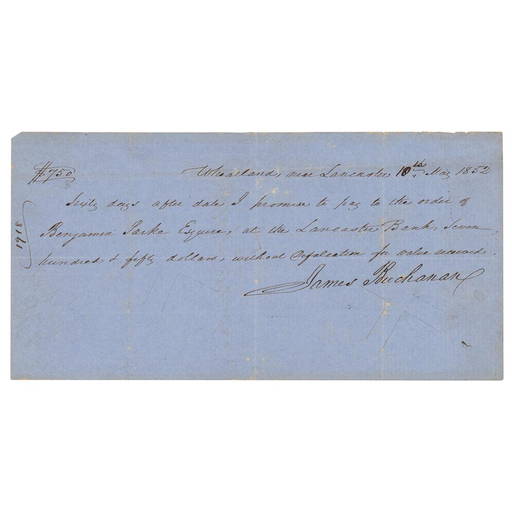 $750 Wheatland, near Lancaster 10th May 1852
Sixty days after date I promise to pay to the order of
Benjamin Parke Esquire, at the Lancaster Bank, Seven
hundred & fifty dollars, without defalcation for value received.
James Buchanan
1918